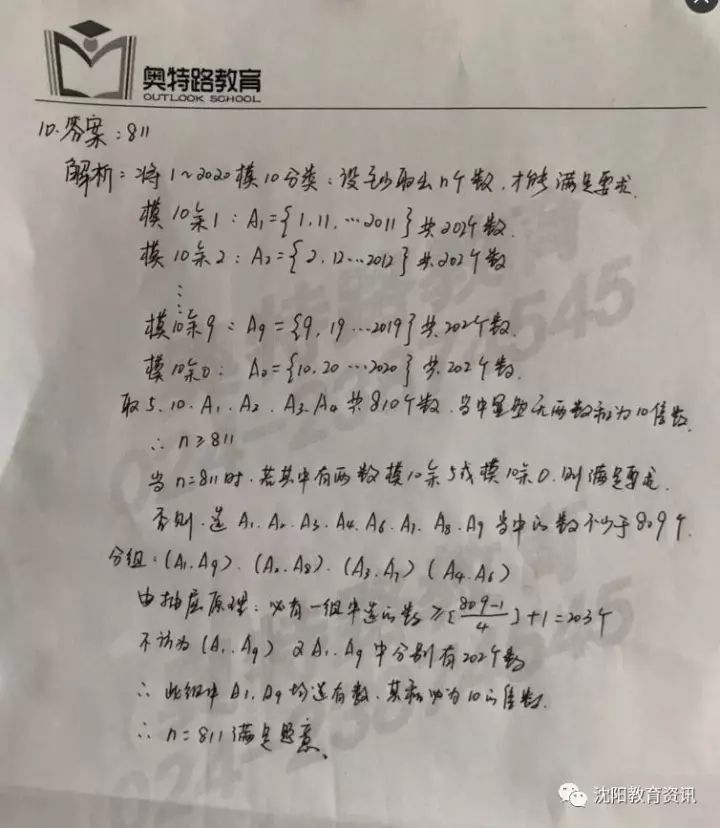 奥特路教育
OUTLOOK SCHOOL
10.答案:811
解析:将1~2020模10分类:设至少取出n个数,才能满足要求.
模10余1:A₁={1,11,…2011}共202个数.
模10余2:A₂={2,12…2012}共202个数
⋮
模10余9:A₉={9,19…2019}共202个数.
模10余0:A₀={10,20…2020}共202个数.
取5、10、A₁、A₂、A₃、A₄共810个数,当中显然无两数和为10倍数.
∴ n≥811
当n=811时.若其中有两数模10余5或模10余0.则满足要求.
否则.选A₁.A₂.A₃.A₄.A₆.A₇.A₈.A₉当中的数不少于809个.
分组:(A₁.A₉).(A₂.A₈).(A₃.A₇)(A₄.A₆)
由抽屉原理:必有一组中选的数≥[809-1/4]+1=203个
不访为(A₁.A₉)又A₁.A₉中分别有202个数
∴此组中A₁.A₉均选有数.其和必为10的倍数.
∴ n=811满足题意.
沈阳教育资讯